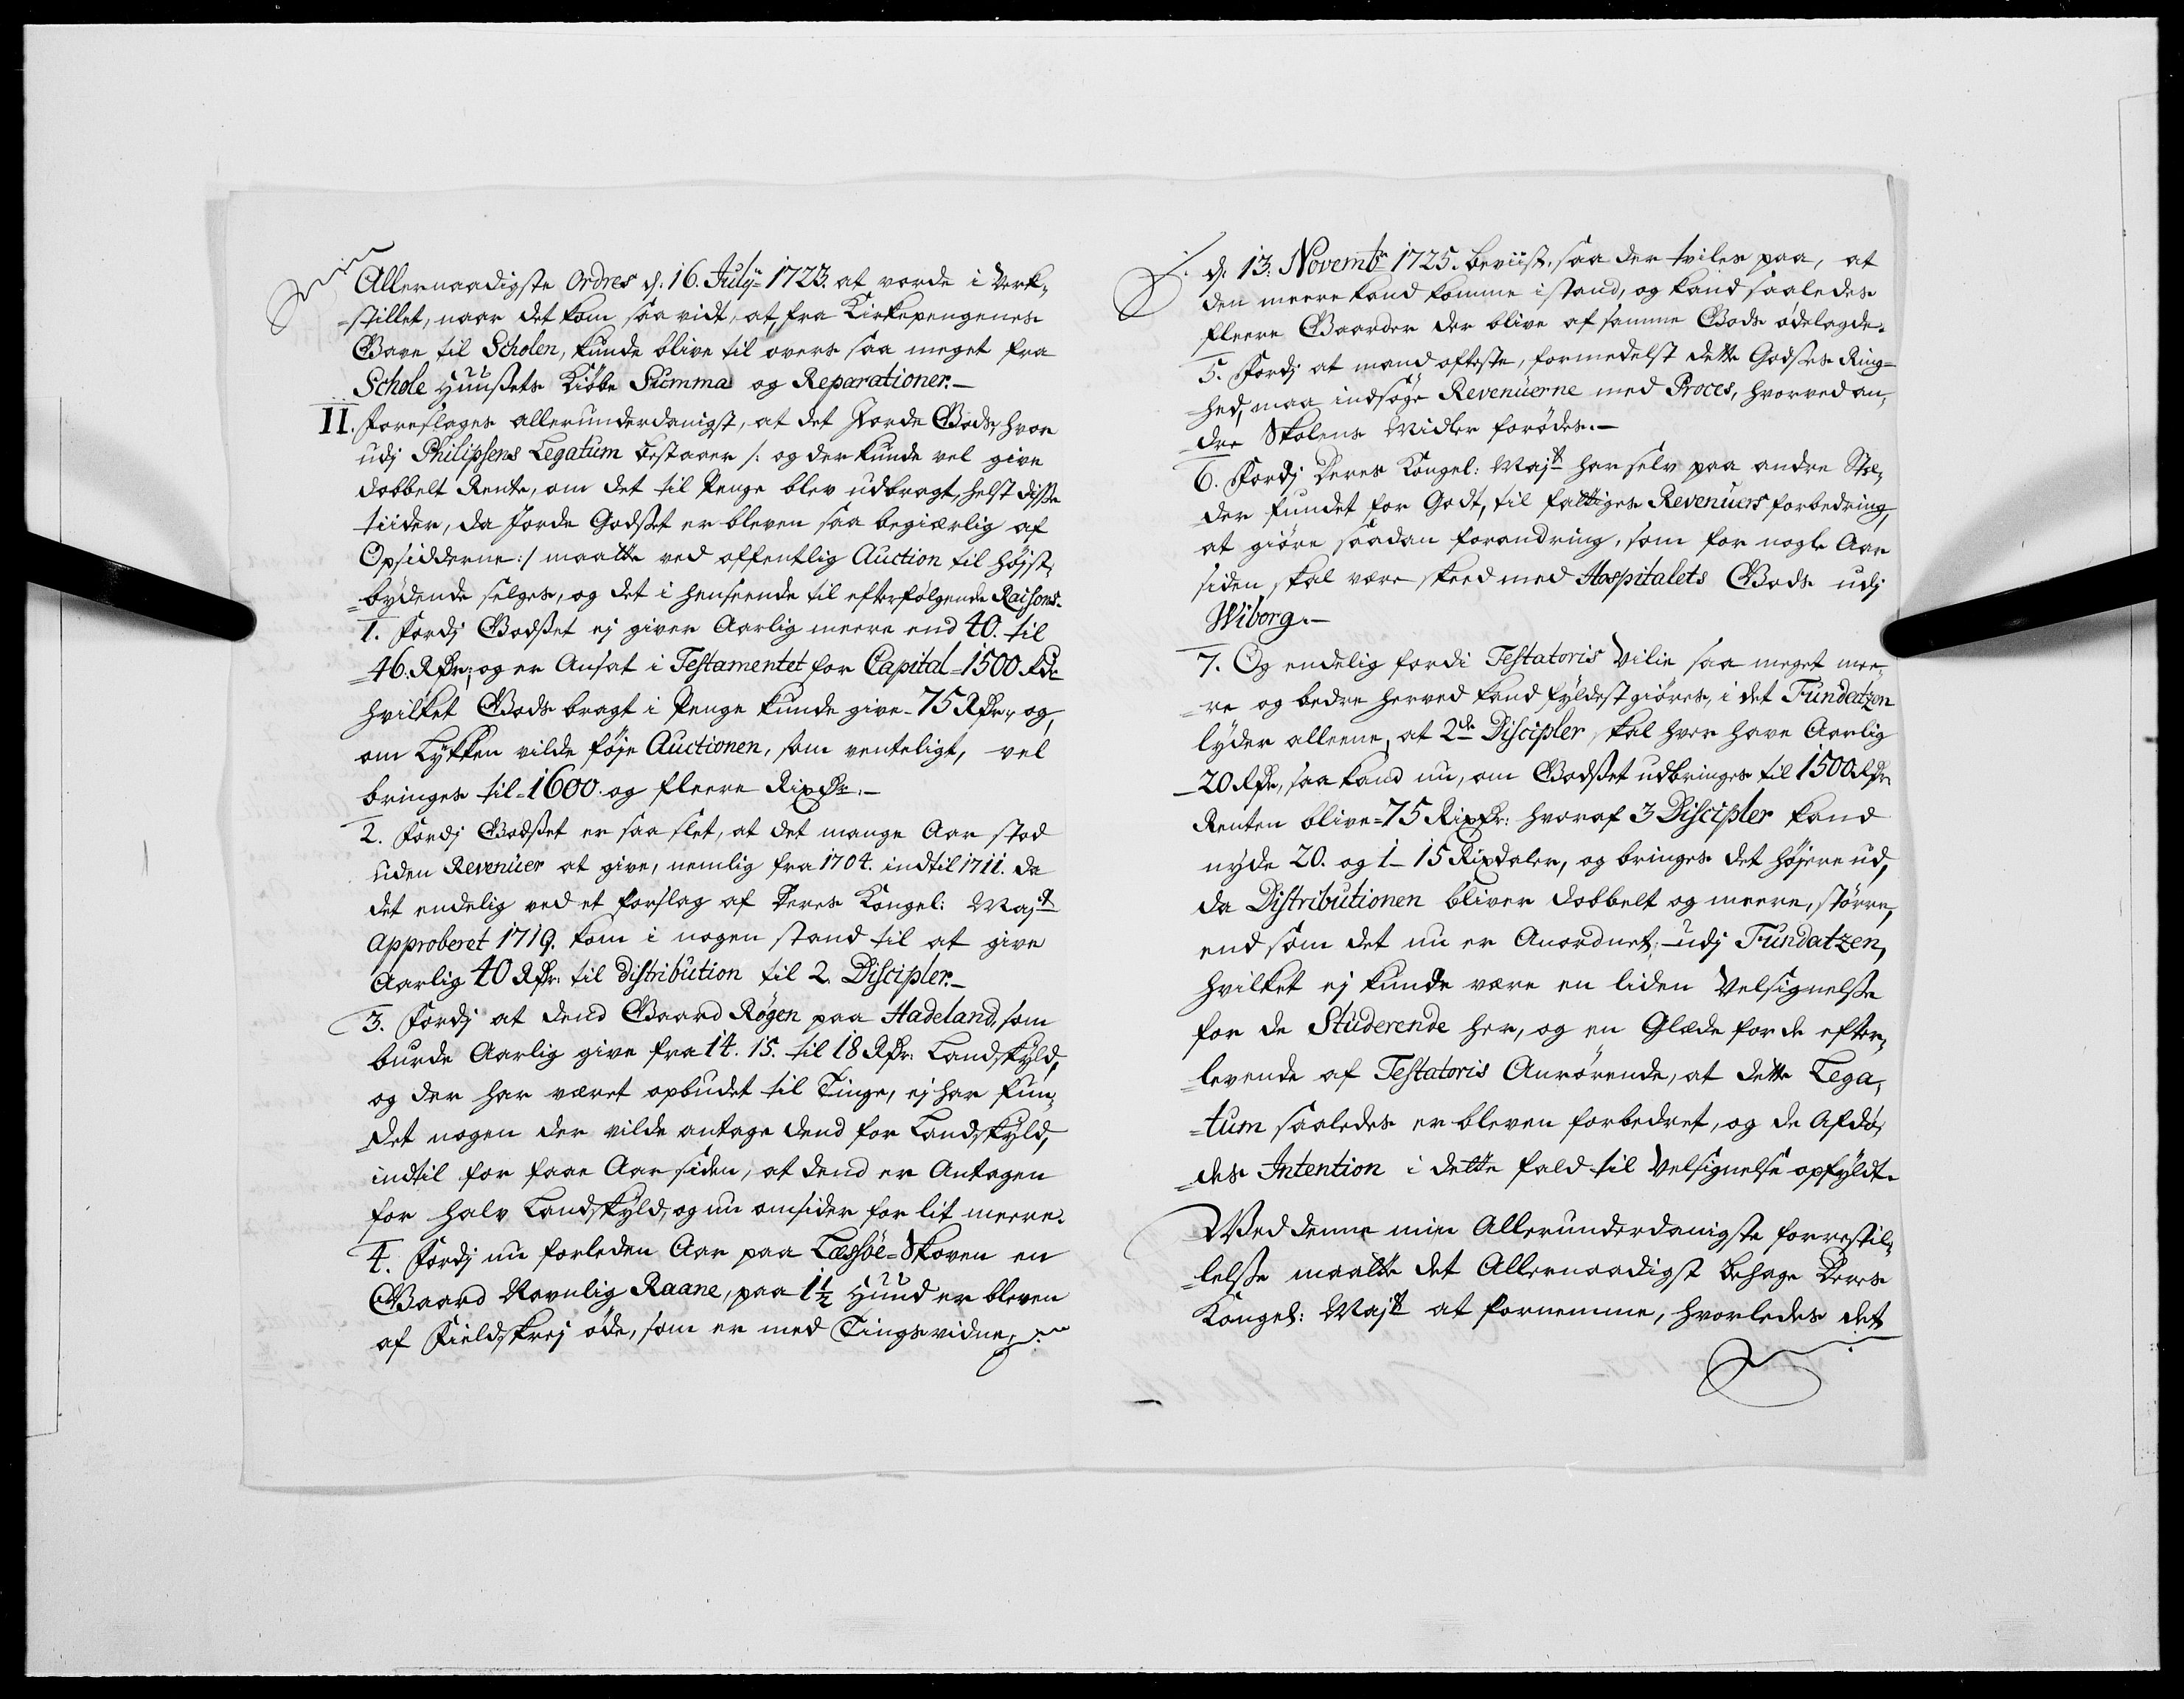 Allernaadigste Ordres d. 16. Julÿ 1723. at vorde i Verk-
=stillet, naar det kom saa vidt, at, fra Kirkepengenes
Gave til Scholen, kunde blive til overs saa meget fra
Schole Huusets Kiöbe Summa og Reparationer.-
II. Foreslages allerunderdanigst, at det Jorde Gods, hvor
udj Philipsens Legatum bestaaer /: og der kunde vel give
dobbelt Rente, om det til Penge blev udbragt, helst disse
tiider, da Jorde Godset er bleven saa begiærlig af
Opsidderne :/ maatte ved offentlig Auction til højst-
=bÿdende selges, og det i henseende til efterfølgende Raisons.
1. Fordj Godset ej giver Aarlig meere end 40. til
46. Rdr. og er Ansat i Testamentet for Capital 1500 Rdr
hvilket Gods bragt i Penge kunde give 75 Rdr, og,
om Lÿkken vilde føje Auctionen, som venteligt, vel
bringes til 1600. og fleere Rixdr.-
2. Fordj Godset er saa slet, at det mange Aar stod
uden Revenüer at give, nemlig fra 1704. indtil 1711. da
det endelig ved et forslag af Deres Kongel: Majt
approberet 1719. kom i nogen stand til at give
Aarlig 40 Rdr. til distribution til 2. Discipler.-
3. Fordj at dend Gaard Røgen paa Hadeland, som
burde Aarlig give fra 14. 15. til 18 Rdr: Landskÿld,
og der har været opbudet til Tinge, ej har fun-
=det nogen der vilde antage dend for Landskÿld,
indtil for faae Aar siden, at dend er Antagen
for halv Landskÿld, og nu omsider for lit meere.
4. Fordj nu forleden Aar paa Læssöe-Skoven en
Gaard Navnlig Raane, paa 1½ Huud er bleven
af Fieldskrej øde, som er med Tingsvidne,
d. 13. Novembr 1725. beviist, saa der tviles paa, at
den meere kand komme i stand, og kand saaledes
fleere Gaarder der blive af samme Gods ødelagde.
5. Fordj at mand ofteste, formedelst dette Godses Ring-
=hed, maa indsøge Revenüerne med Proces, hvorved an-
dre Skolens Midler forødes.-
6. Fordj Deres Kongel: Majt har selv paa andre Stæ-
der fundet for Godt, til fattiges Revenüers forbedring,
at giøre saadan forandring, som for nogle Aar
siden skal være skeed med Hospitalets Gods udj
Wiborg.-
7. Og endelig fordi Testatoris Vilie saa meget mee-
=re og bedre herved kand fÿldestgiøres, i det Fundatzen
lÿder alleene, at 2de Discipler skal hver have Aarlig
20 Rdr, saa kand nu, om Godset udbringes til 1500 Rdr
Renten blive 75 Rixdr: hvoraf 3 Discipler kand
nÿde 20. og 1- 15 Rixdaler, og bringes det højere ud,
da Distributionen bliver dobbelt og meere, større,
end som det nu er Anordnet udj Fundatzen,
hvilket ej kunde være en liden Velsignelse
for de Studerende her, og en Glæde for de efter-
=levende af Testatoris Anrørende, at dette Lega-
=tum saaledes er bleven forbedret, og de Afdø-
=des Intention i dette fald til Velsignelse opfÿldt.
Ved denne min Allerunderdanigste forrestil-
=lelse maatte det Allernaadigst behage Deres
Kongel: Majt at fornemme, hvorledes det